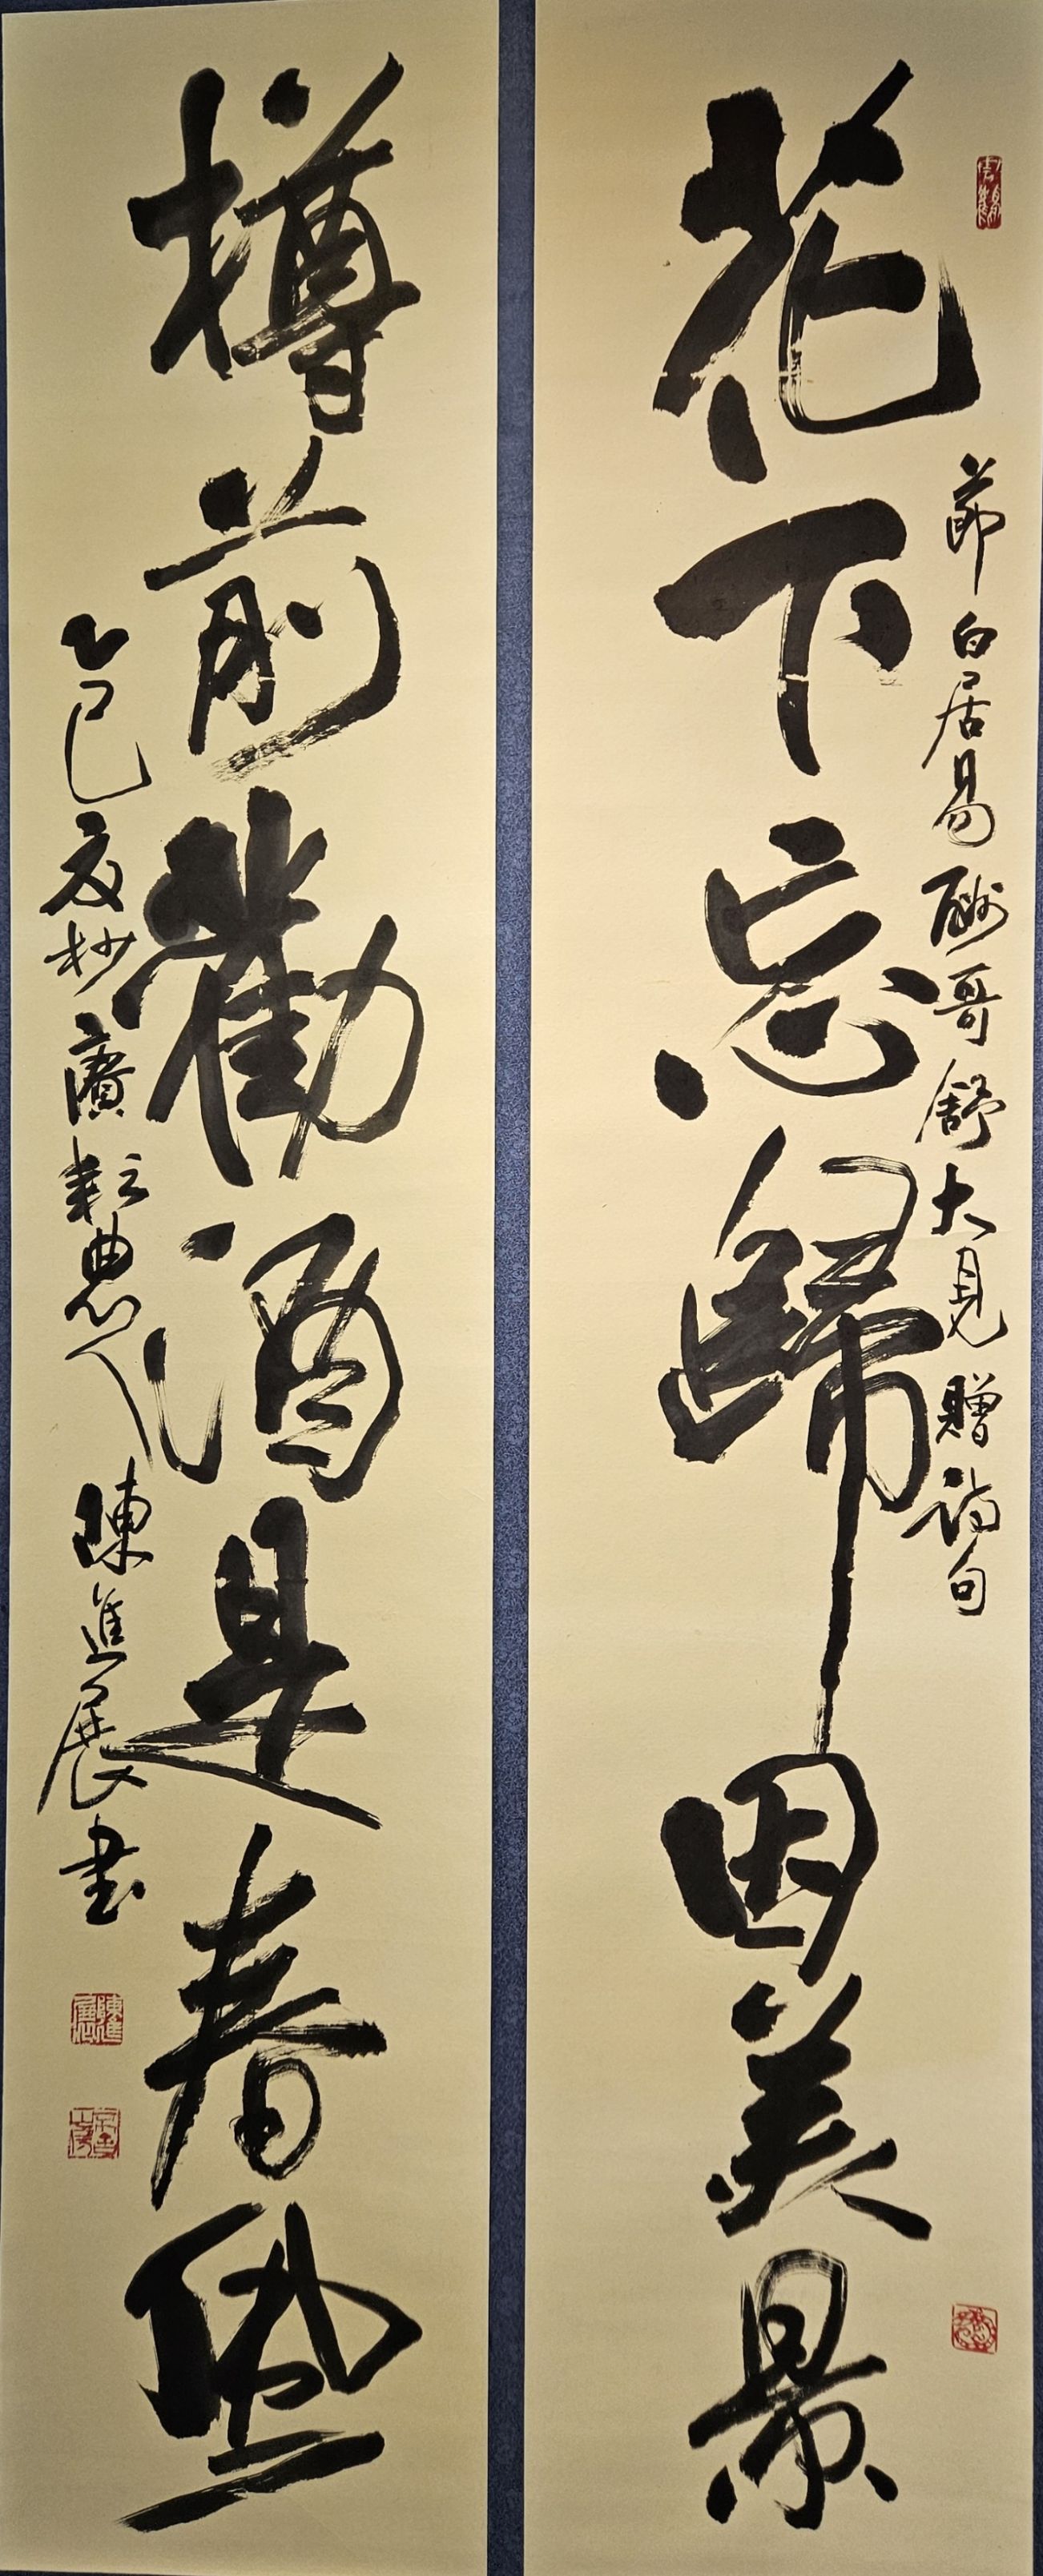 花下忘歸因美景
節白居易酬哥舒大見贈詩句
樽前勸酒是春風
乙巳夏杪廣耘典愚人陳進展書